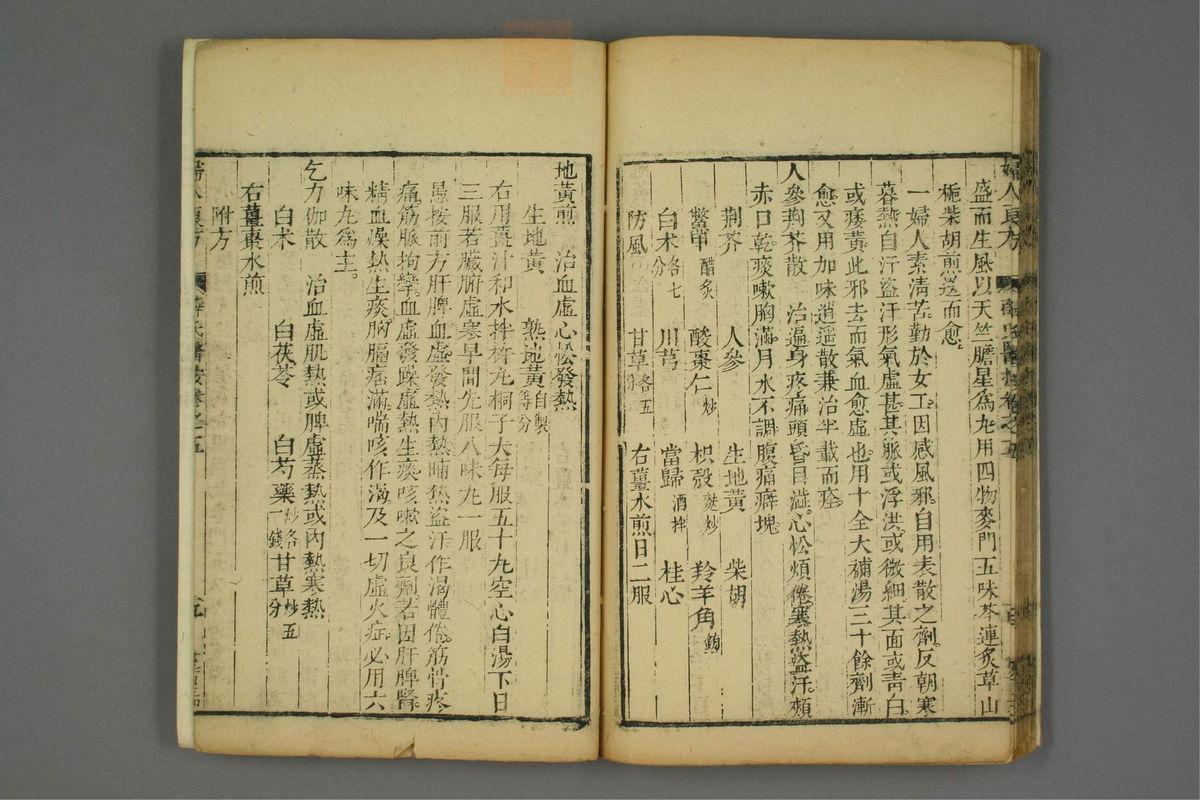 婦人良方
盛而生風以天竺膽星為丸用四物麥門五味芩連炙草山
梔柴胡煎送而愈
一婦人素清苦勤於女工因感風邪自用表散之劑反朝寒
暮熱自汗盜汗形氣虛甚其脈或浮洪或微細其面或青白
或痿黃此邪去而氣血愈虛也用十全大補湯三十餘劑漸
愈又用加味逍遙散兼治半載而痊
人參荊芥散 治遍身疼痛頭昏目澁心忪煩倦寒熱盜汗頰
赤口乾痰嗽胸滿月水不調腹痛癖塊
荊芥 人參 生地黃 柴胡
鱉甲醋炙 酸棗仁炒 枳殼麩炒 羚羊角鎊
白朮各七分 川芎 當歸酒拌 桂心
防風 甘草各五分 右薑水煎日二服
地黃煎 治血虛心忪發熱
生地黃 熟地黃自製等分
右用薑汁和水拌杵丸桐子大每服五十丸空心白湯下日
三服若臟腑虛寒早間先服八味丸一服
愚按前方肝脾血虛發熱內熱晡熱盜汗作渴體倦筋骨疼
痛筋脈拘攣血虛發躁虛熱生痰咳嗽之良劑若因肝脾腎
精血燥熱生痰胸膈痞滿喘咳作渴及一切虛火症必用六
味丸為主
乞力伽散 治血虛肌熱或脾虛蒸熱或內熱寒熱
白朮 白茯苓 白芍藥炒各一錢 甘草炒五分
右薑棗水煎
附方
婦人良方 薛氏醫按卷之五